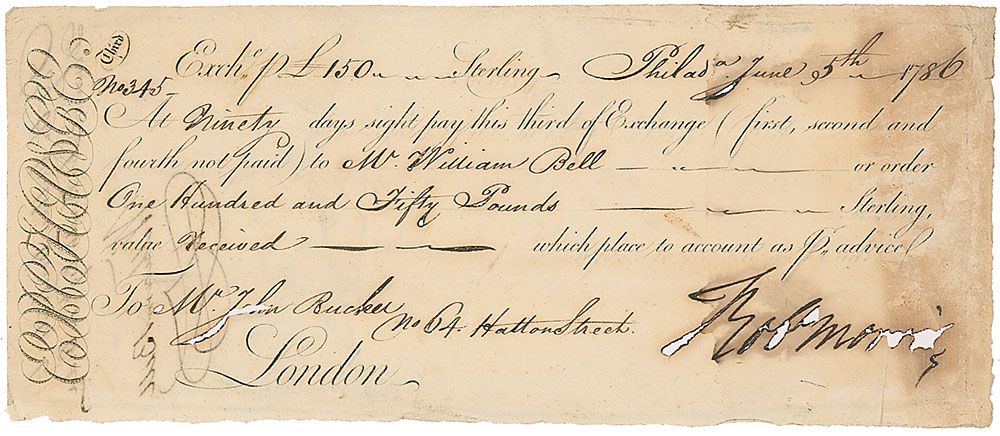 Third
No 345
Exch.e p £ 150 Sterling Philad.a June 5th 1786
At Ninety days sight pay this third of Exchange (first, second and
fourth not paid) to Mr. William Bell or order
One Hundred and Fifty Pounds Sterling,
value Received which place to account as p. advice
To Mr. John
No 64 Hatton Street.
London
Rob Morris